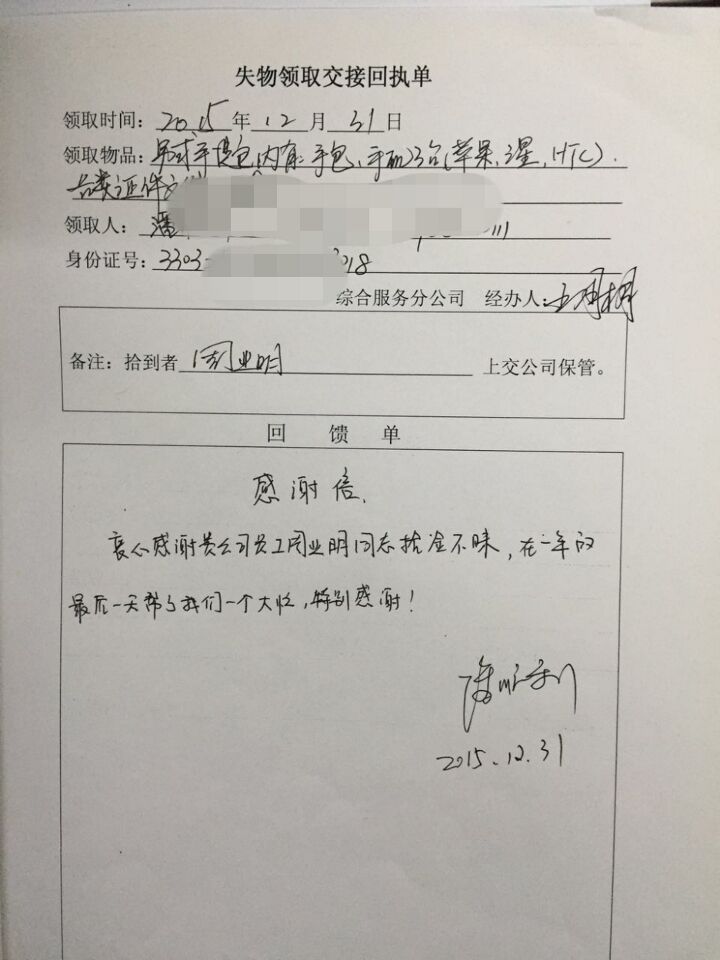 失物领取交接回执单
领取时间：2015年12月31日
领取物品：男式手提包,内有：手包、手机3台(苹果,三星,HTC).
各类证件
领取人：潘
身份证号：3303 018
综合服务分公司 经办人：
备注：拾到者 周业明 上交公司保管。
回馈单
感谢信.
衷心感谢贵公司员工周业明同志拾金不昧，在一年的
最后一天帮了我们一个大忙,特别感谢！
2015.12.31